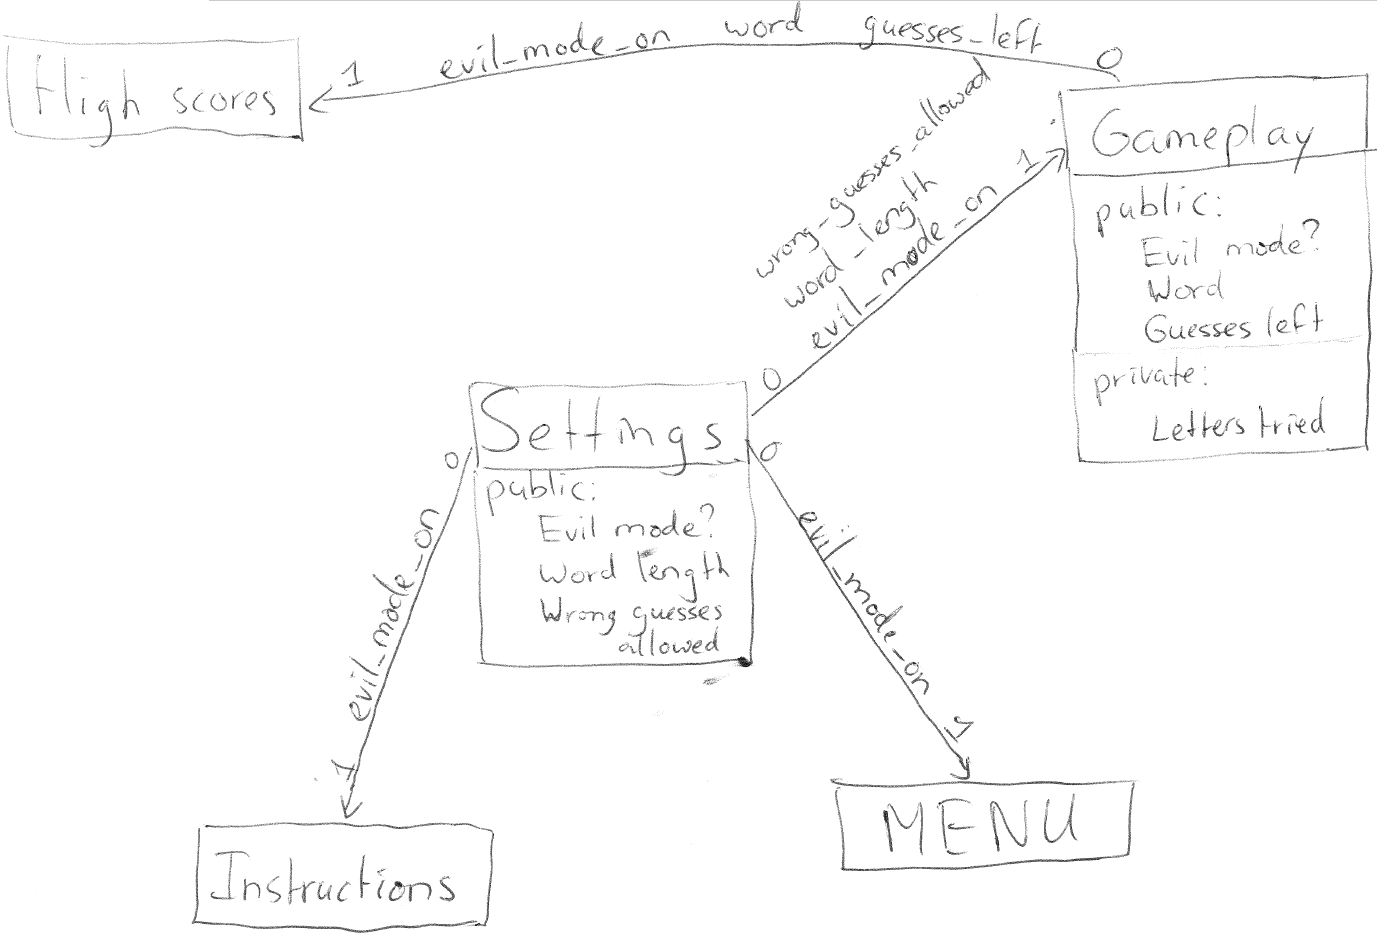 evil_mode_on word guesses_left
1
0
High scores
Gameplay
public:
Evil mode?
Word
Guesses left
private:
Letters tried
wrong_guesses_allowed
word_length
evil_mode_on
1
0
Settings
public:
Evil mode?
Word length
Wrong guesses
allowed
0
evil_mode_on
1
0
evil_mode_on
1
Instructions
MENU